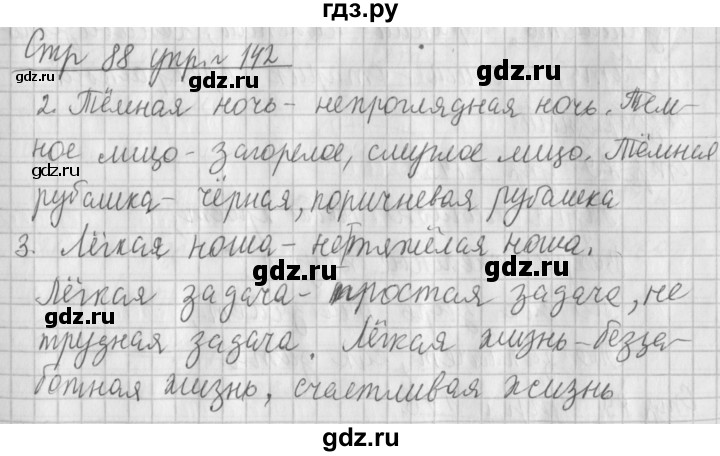 гдз.ру
Стр 88 упр. 142
2. Тёмная ночь - непроглядная ночь. Тем-
gdz.ru gdz.ru
ное лицо - загорелое, смуглое лицо. Тёмная
рубашка - чёрная, поричневая рубашка
3. Лёгкая ноша - нетяжёлая ноша.
gdz.ru gdz.ru
Лёгкая задача - простая задача, не
трудная задача. Лёгкая жизнь - безза-
gdz.ru gdz.ru
ботная жизнь, счастливая жизнь
gdz.ru